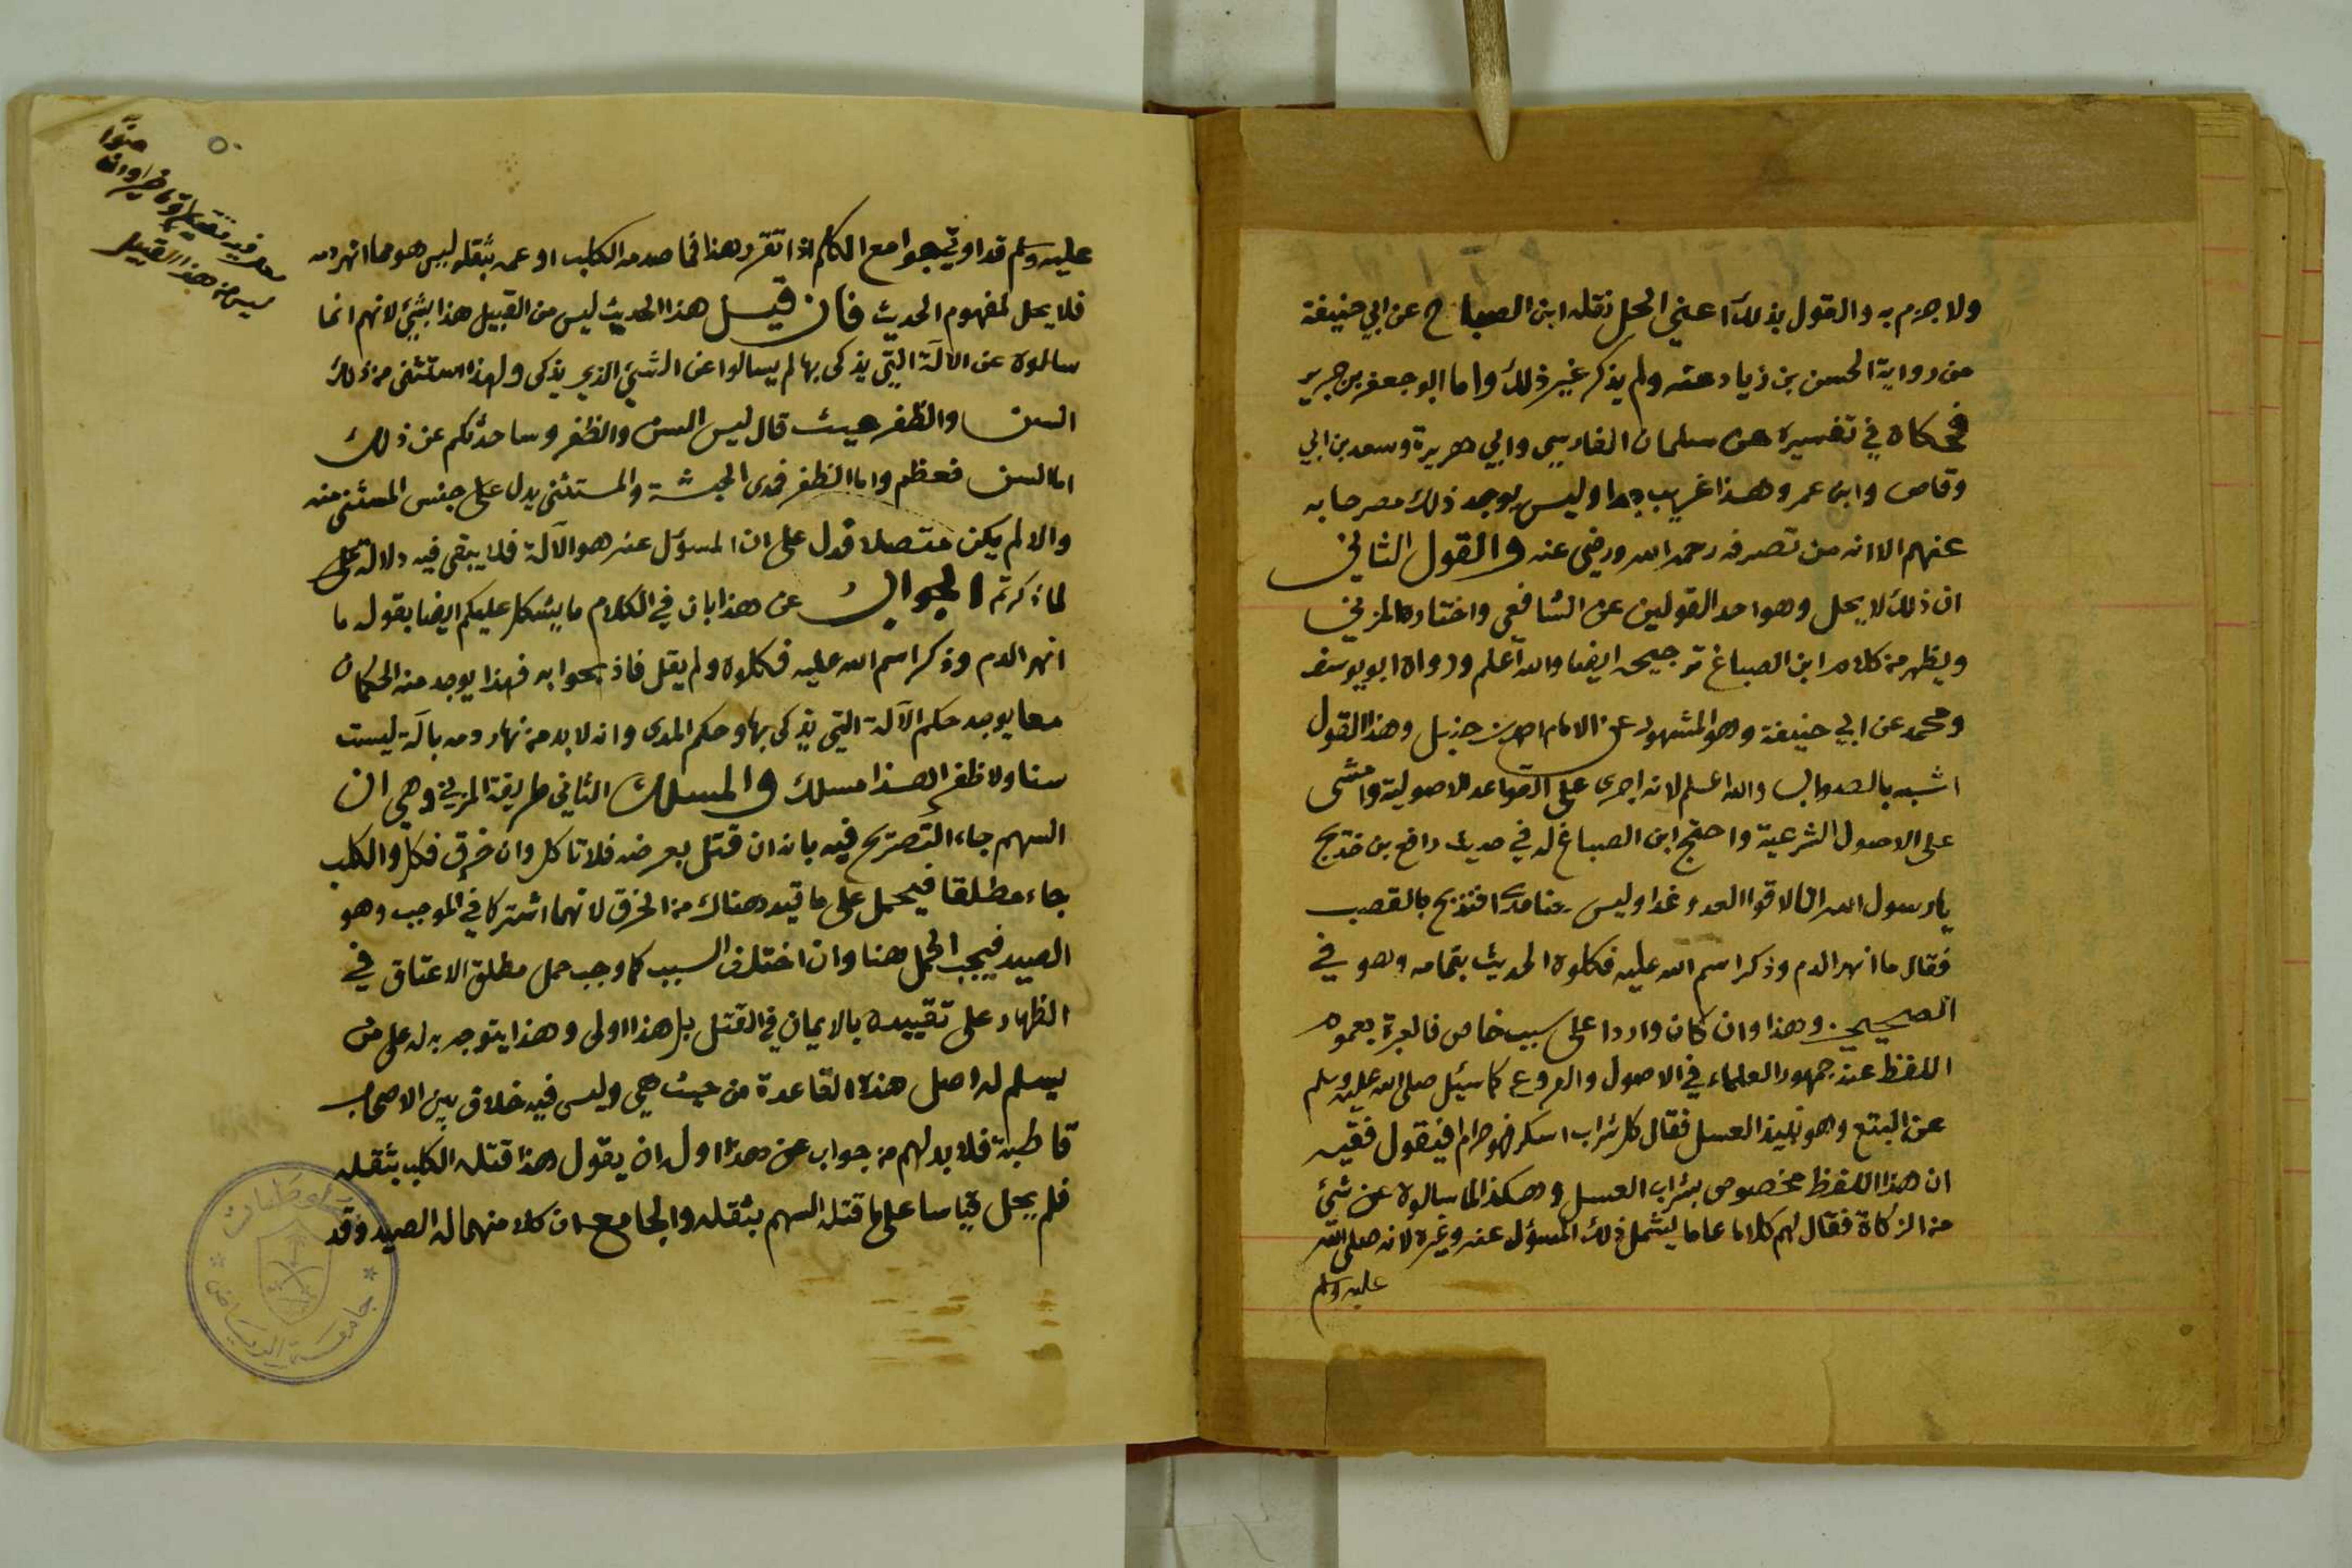 ولا جزم به والقول بذلك اعني الحل نقله ابن الصباغ عن ابي حنيفة
من رواية الحسن بن زياد عنه ولم يذكر غير ذلك واما ابو جعفر بن جرير
فحكاه في تفسيره عن سلمان الفارسي وابي هريرة وسعد بن ابي
وقاص وابن عمر وهذا غريب جدا وليس يوجد ذلك مصرحا به
عنهم الا انه من تصرفه رحمه الله ورضى عنه والقول الثاني
ان ذلك لا يحل وهو احد القولين عن الشافعي واختاره المزني
ويظهر من كلام ابن الصباغ ترجيحه ايضا والله اعلم ورواه ابو يوسف
ومحمد عن ابي حنيفة وهو المشهور عن الامام احمد بن حنبل وهذا القول
اشبه بالصواب والله اعلم لانه اجرى على القواعد الاصولية وامشى
على الاصول الشرعية واحتج ابن الصباغ له في حديث رافع بن خديج
يا رسول الله انا لاقوا العدو غدا وليس معنا مدى افنذبح بالقصب
فقال ما انهر الدم وذكر اسم الله عليه فكلوه الحديث بتمامه وهو في
الصحيحين وهذا وان كان واردا على سبب خاص فالعبرة بعموم
اللفظ عند جمهور العلماء في الاصول والفروع كما سئيل صلى الله عليه وسلم
عن البتع وهو نبيذ العسل فقال كل شراب اسكر فهو حرام افيقول فقيه
ان هذا اللفظ مخصوص بشراب العسل وهكذا لما سالوه عن شئ
من الزكاة فقال لهم كلاما عاما يشمل ذلك المسؤل عنه وغيره لانه صلى الله
عليه وسلم
٥٠
ليس من هذا القبيل
عليه وسلم قد اوتي جوامع الكلم اذا تقرر هذا فما صدمه الكلب او غمه بثقله ليس هو مما انهر دمه
فلا يحل لمفهوم الحديث فان قيل هذا الحديث ليس من القبيل هذا بشئ لانهم انما
سالوه عن الآلة التي يذكى بها لم يسالوا عن الشئ الذي يذكى ولهذا استثنى من ذلك
السن والظفر حيث قال ليس السن والظفر وساحدثكم عن ذلك
اما السن فعظم واما الظفر فمدى الحبشة والمستثنى يدل على جنس المستثنى منه
والا لم يكن متصلا فدل على ان المسؤل عنه هو الآلة فلا يبقى فيه دلالة على
لما ذكرتم الجواب عن هذا بان في الكلام ما يشكل عليكم ايضا بقوله ما
انهر الدم وذكر اسم الله عليه فكلوه ولم يقل فاذبحوا به فهذا يوجد منه الحكمان
معا يوجد حكم الآلة التي يذكى بها وحكم المدى وانه لا بد من انهار دمه بالة ليست
سنا ولا ظفر الهذا مسلك والمسلك الثاني طريقة المزني وهي ان
السهم جاء التصريح فيه بانه ان قتل بعرضه فلا تاكل وان خرق فكل والكلب
جاء مطلقا فيحمل على ما قيد هناك من الخرق لانهما اشتركا في الموجب وهو
الصيد فيجب الحمل هنا وان اختلف السبب كما وجب حمل مطلق الاعتاق في
الظهار على تقييده بالايمان في القتل بل هذا اولى وهذا يتوجه به له على من
يسلم له اصل هذه القاعدة من حيث هي وليس فيه خلاف بين الاصحاب
قاطبة فلا بد لهم من جواب عن هذا اولى ان يقول هذا قتله الكلب بثقله
فلم يحل قياسا على ما قتله السهم بثقله والجامع ان كلا منهما آلة الصيد وقد
جامعة الرياض
مخطوطات